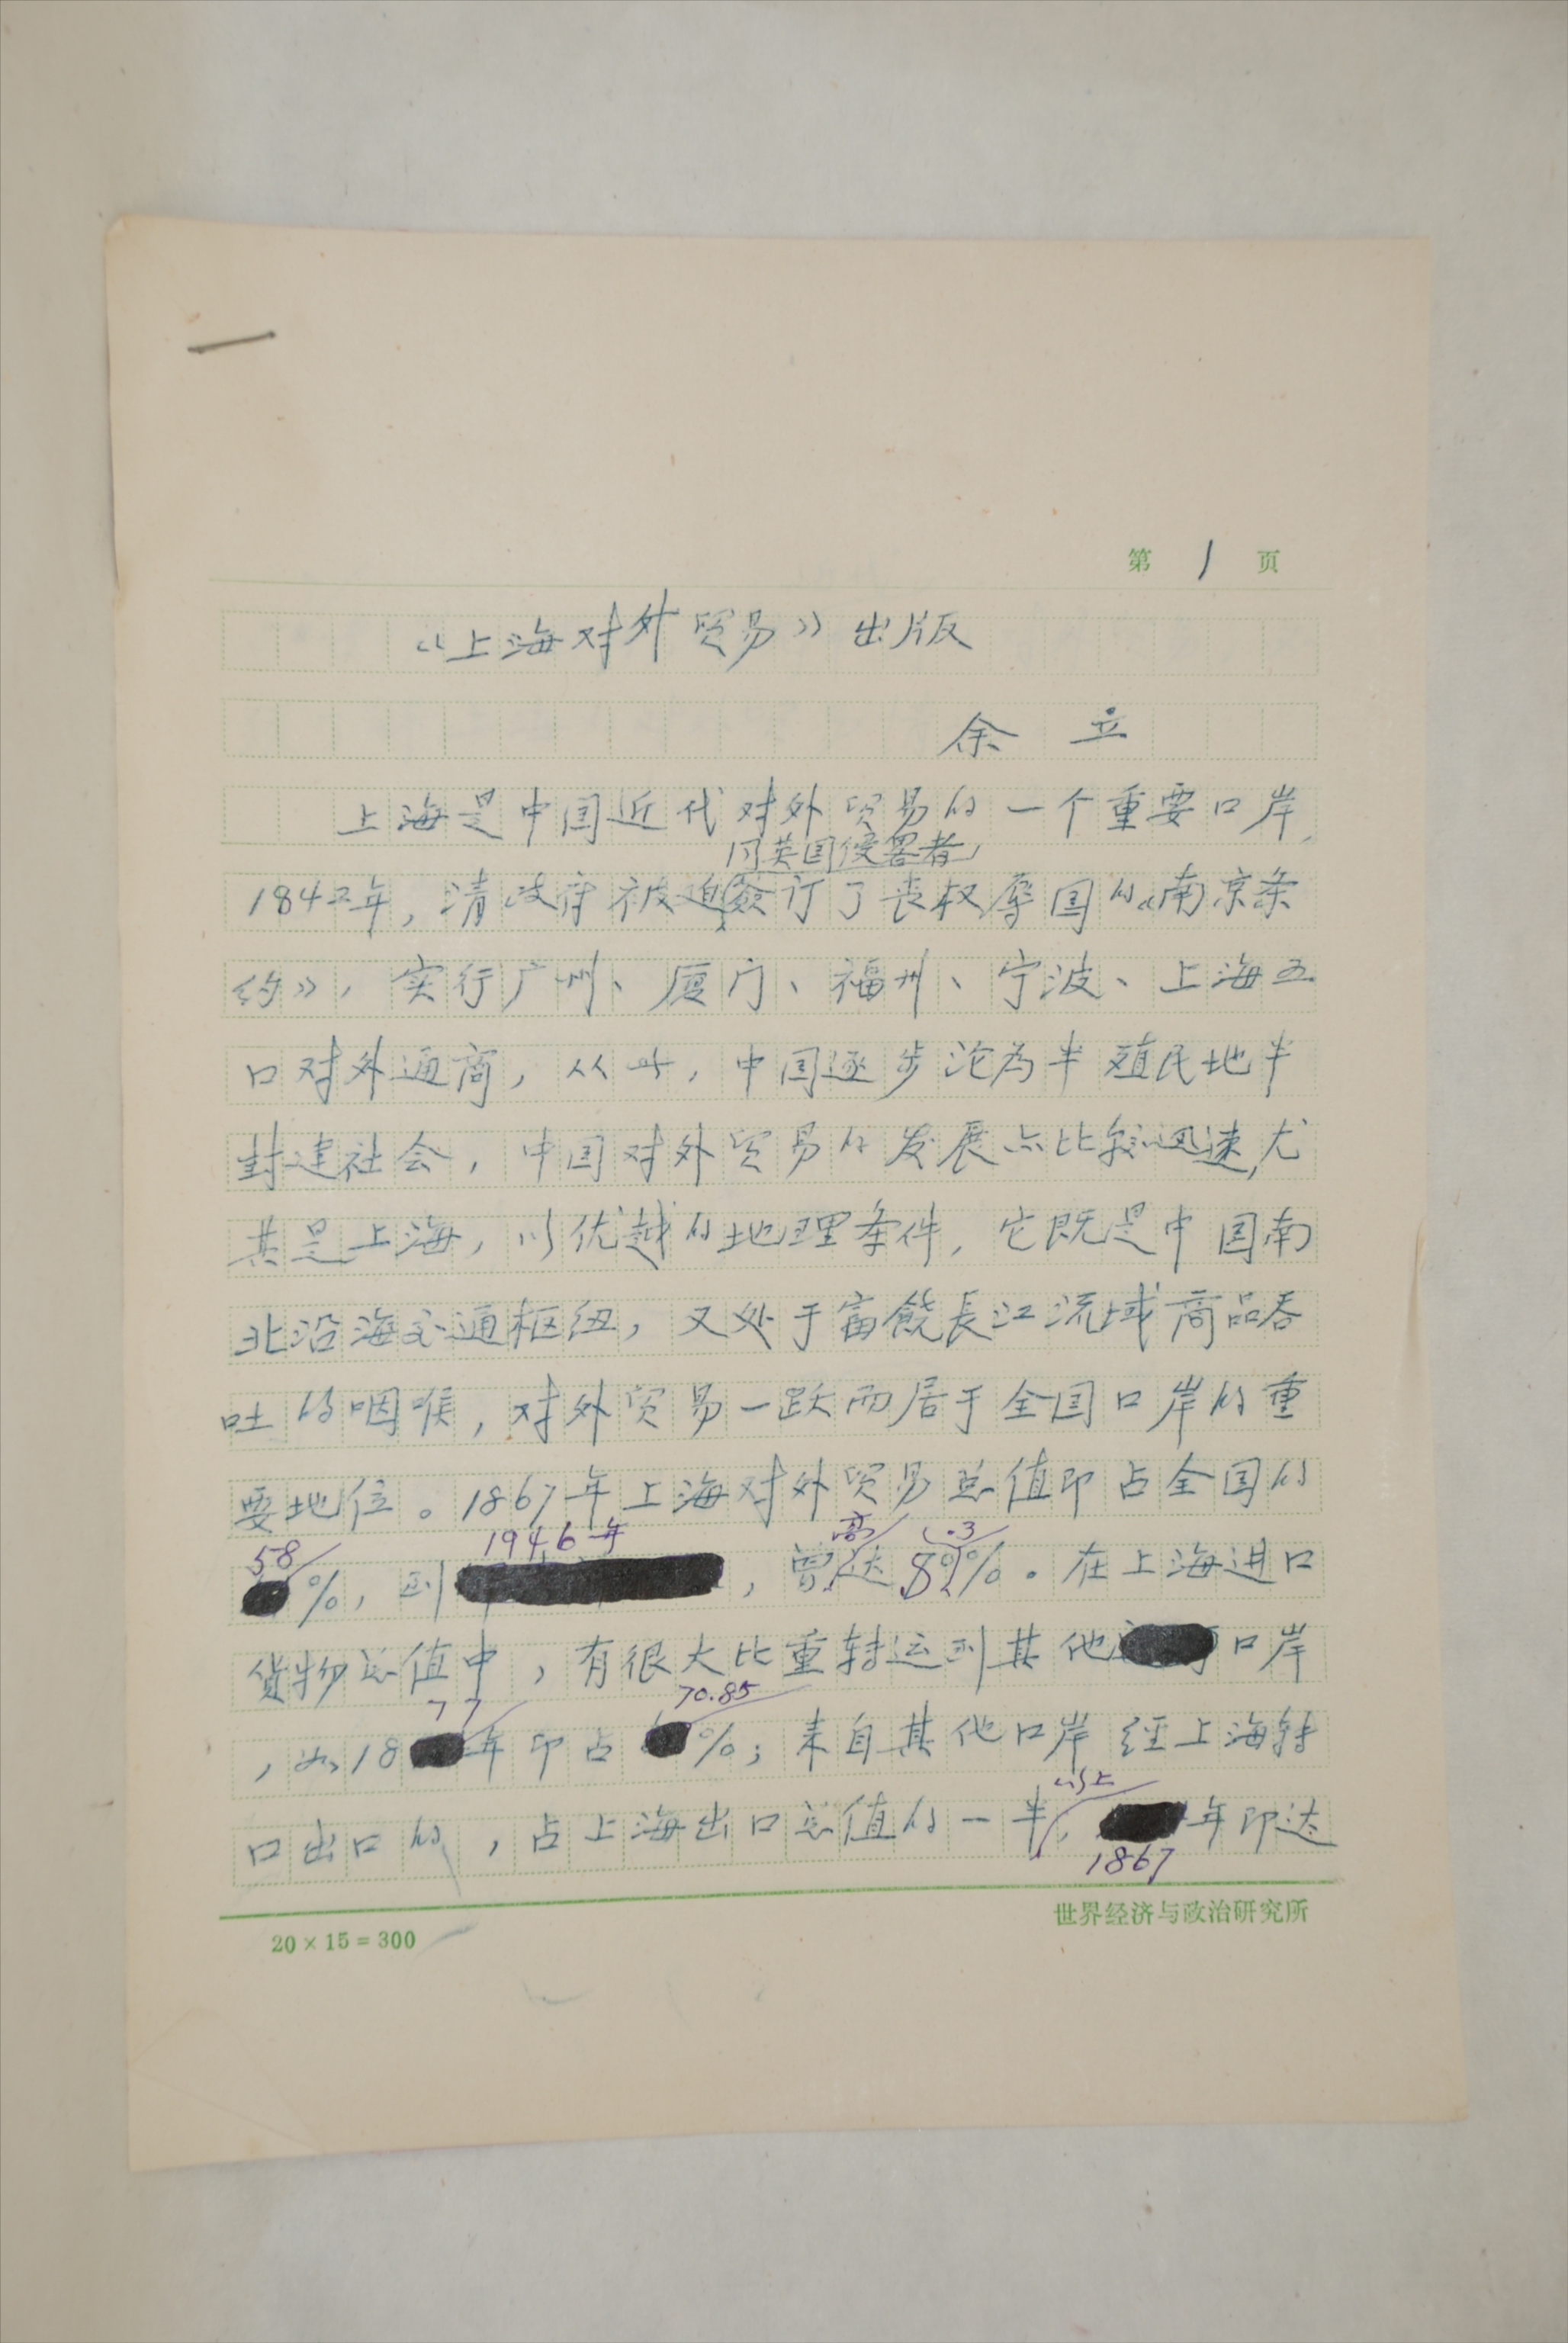 第 1 页
《上海对外贸易》出版
余 立
上海是中国近代对外贸易的一个重要口岸,
同英国侵略者
1842年,清政府被迫签订了丧权辱国的《南京条
约》,实行广州、厦门、福州、宁波、上海五
口对外通商,从此,中国逐步沦为半殖民地半
封建社会,中国对外贸易的发展亦比较迅速,尤
其是上海,以优越的地理条件,它既是中国南
北沿海交通枢纽,又处于富饶長江流域商品吞
吐的咽喉,对外贸易一跃而居于全国口岸的重
要地位。1867年上海对外贸易总值即占全国的
58 1946年 高 .3
%,到,曾达89%。在上海进口
货物总值中,有很大比重转运到其他口岸
77 70.85
,如18年即占%;来自其他口岸经上海转
以上
口出口的,占上海出口总值的一半,年即达
1867
20×15=300
世界经济与政治研究所